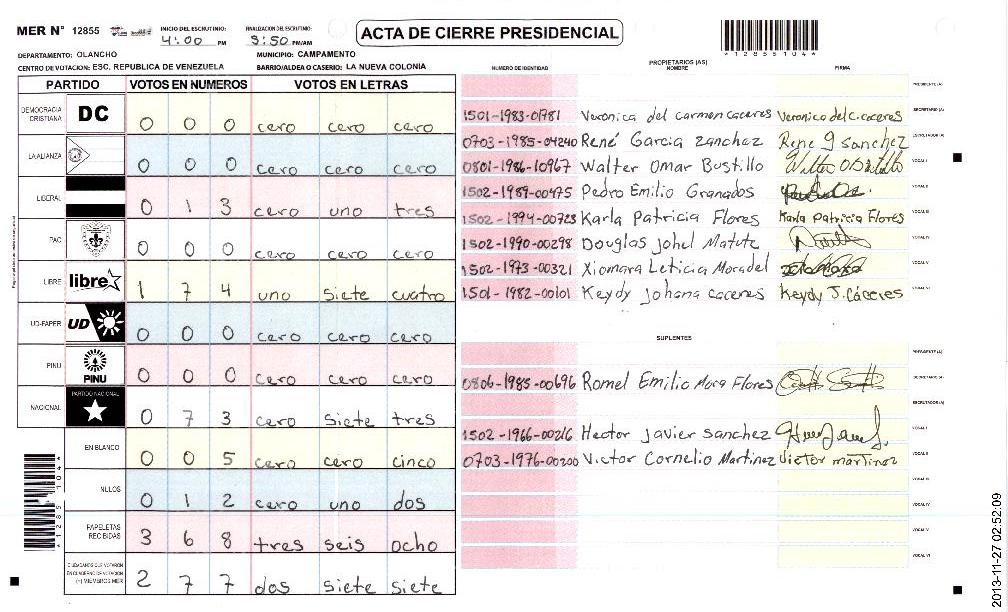 MER N° 12855 INICIO DEL ESCRUTINIO: 4:00 PM FINALIZACION DEL ESCRUTINIO: 9:50 PM/AM ACTA DE CIERRE PRESIDENCIAL
*12855104*
DEPARTAMENTO: OLANCHO MUNICIPIO: CAMPAMENTO
CENTRO DE VOTACION: ESC. REPUBLICA DE VENEZUELA BARRIO/ALDEA O CASERIO: LA NUEVA COLONIA
PARTIDO VOTOS EN NUMEROS VOTOS EN LETRAS
DEMOCRACIA CRISTIANA DC 0 0 0 cero cero cero
LA ALIANZA 0 0 0 cero cero cero
LIBERAL 0 1 3 cero uno tres
PAC 0 0 0 cero cero cero
LIBRE libre 1 7 4 uno siete cuatro
UD-FAPER UD 0 0 0 cero cero cero
PINU PINU 0 0 0 cero cero cero
NACIONAL PARTIDO NACIONAL 0 7 3 cero siete tres
EN BLANCO 0 0 5 cero cero cinco
NULOS 0 1 2 cero uno dos
PAPELETAS RECIBIDAS 3 6 8 tres seis ocho
CIUDADANOS QUE VOTARON EN CUADERNO DE VOTACION (+) MIEMBROS MER 2 7 7 dos siete siete
NUMERO DE IDENTIDAD PROPIETARIOS (AS) NOMBRE FIRMA
PRESIDENTE (A)
1501-1983-01781 Veronica del carmen caceres Veronica del c. caceres SECRETARIO (A)
0703-1985-04240 René Garcia zanchez Rene g sanchez ESCRUTADOR (A)
0801-1986-10967 Walter Omar Bustillo VOCAL I
1502-1989-00475 Pedro Emilio Granados VOCAL II
1502-1994-00723 Karla Patricia Flores Karla Patricia Flores VOCAL III
1502-1990-00298 Douglas Johel Matute VOCAL IV
1502-1973-00321 Xiomara Leticia Moradel VOCAL V
1501-1982-00101 Keydy Johana caceres Keydy J. Cáceres VOCAL VI
SUPLENTES
PRESIDENTE (A)
0806-1985-00696 Romel Emilio Mora Flores SECRETARIO (A)
ESCRUTADOR (A)
1502-1966-00216 Hector Javier sanchez VOCAL I
0703-1976-00200 Victor Cornelio Martinez victor martinez VOCAL II
VOCAL III
VOCAL IV
VOCAL V
VOCAL VI
2013-11-27 02:52:09